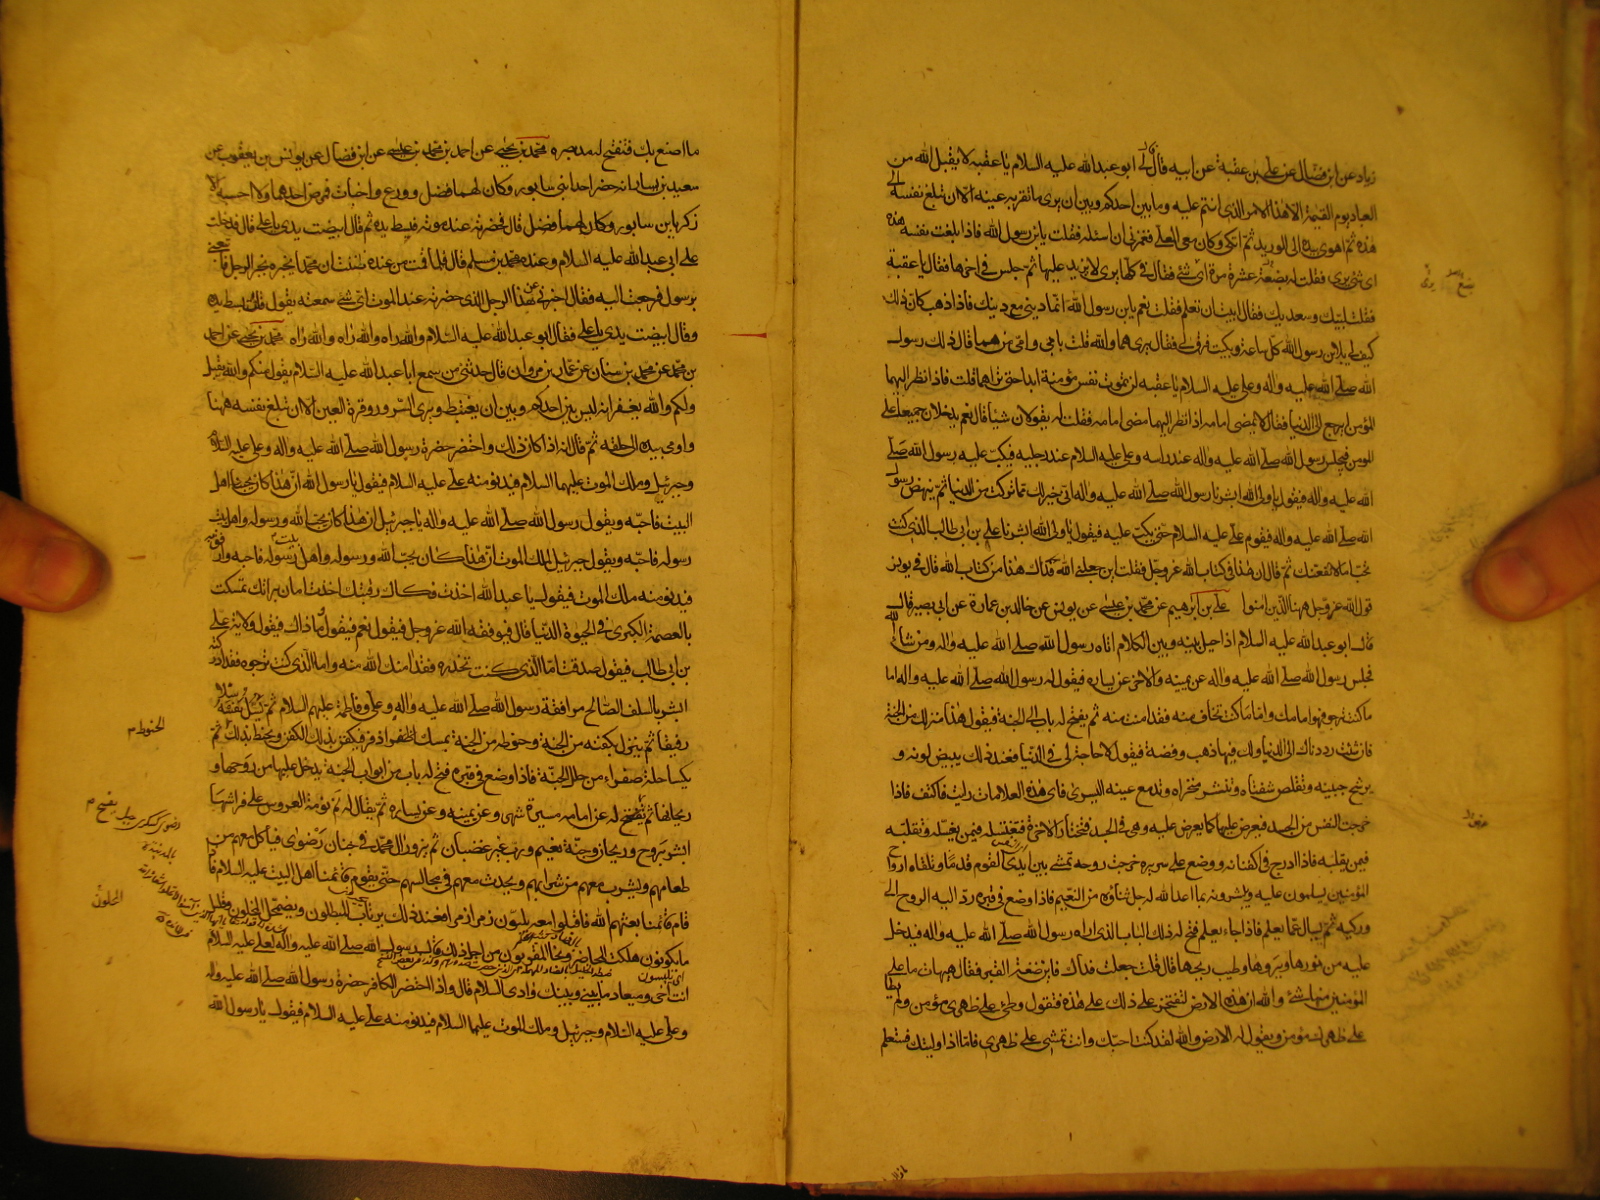 زياد عن ابن فضال عن علي بن عقبة عن ابيه قال قال لي ابو عبدالله عليه السلام يا عقبه لا يقبل الله من
العباد يوم القيمة الا هذا الامر الذي انتم عليه وما بين احدكم وبين ان يرى ما تقر به عينه الا ان تبلغ نفسه الى
هذه ثم اهوى بيده الى الوريد ثم اتكى وكان معي المعلى فغمزني ان اسئله فقلت يا بن رسول الله فاذا بلغت نفسه هذه
اي شئ يرى فقلت له بضعة عشرة مرة اي شئ فقال في كلها يرى لا يزيد عليها ثم جلس في اخرها فقال يا عقبة
فقلت لبيك وسعديك فقال ابيت ان تعلم فقلت نعم يا بن رسول الله انما ديني مع دينك فاذا ذهب كان ذلك
كيف لي بك يا بن رسول الله كل ساعة وبكيت فرق لي فقال يرىهما والله قلت بابي وامي من هما قال ذلك رسول
الله صلى الله عليه واله وعلي عليه السلام يا عقبه لن تموت نفس مؤمنة ابدا حتى تراهما قلت فاذا نظر اليهما
المؤمن ايرجع الى الدنيا فقال لا يمضي امامه اذا نظر اليهما مضى امامه فقلت له يقولان شيئا قال نعم يدخلان جميعا على
المؤمن فيجلس رسول الله صلى الله عليه واله عند راسه وعلي عليه السلام عند رجليه فيكب عليه رسول الله صلى
الله عليه واله فيقول يا ولي الله ابشر انا رسول الله صلى الله عليه واله اني خير لك مما تركت من الدنيا ثم ينهض رسول
الله صلى الله عليه واله فيقوم علي عليه السلام حتى يكب عليه فيقول يا ولي الله ابشر انا علي بن ابي طالب الذي كنت
تحبه اما لانفعنك ثم قال ان هذا في كتاب الله عز وجل فقلت اين جعلني الله فداك هذا من كتاب الله قال في يونس
قول الله عز وجل ههنا الذين امنوا علي بن ابرهيم عن محمد بن عيسى عن يونس عن خالد بن عمارة عن ابي بصير قال
قال ابو عبدالله عليه السلام اذا حيل بينه وبين الكلام اتاه رسول الله صلى الله عليه واله ومن شاء الله
فجلس رسول الله صلى الله عليه واله عن يمينه والاخر عن يساره فيقول له رسول الله صلى الله عليه واله اما
ما كنت ترجو فهو امامك واما ما كنت تخاف منه فقد امنت منه ثم يفتح له باب الى الجنة فيقول هذا منزلك من الجنة
فان شئت رددناك الى الدنيا ولك فيها ذهب وفضة فيقول لا حاجة لي في الدنيا فعند ذلك يبيض لونه و
يرشح جبينه وتقلص شفتاه وتنتشر منخراه وتدمع عينه اليسرى فاي هذه العلامات رايت فاكتف فاذا
خرجت النفس من الجسد فيعرض عليها كما يعرض عليه وهي في الجسد فتختار الاخرة فتغسله فيمن يغسله وتقلبه
فيمن يقلبه فاذا ادرج في اكفانه ووضع على سريره خرجت روحه تمشي بين ايدي القوم قدما وتلقاه ارواح
المؤمنين يسلمون عليه ويبشرونه بما اعد الله له جل ثناؤه من النعيم فاذا وضع في قبره رد اليه الروح الى
وركيه ثم يسال عما يعلم فاذا جاء بما يعلم فتح له ذلك الباب الذي اراه رسول الله صلى الله عليه واله فيدخل
عليه من نورها وبردها وطيب ريحها قال قلت جعلت فداك فاين ضغطة القبر فقال هيهات ما على
المؤمنين منها شئ والله ان هذه الارض لتفتخر على ذلك على هذه فتقول وطئ على ظهري مؤمن ولم يطا
على ظهرك مؤمن وتقول له الارض والله لقد كنت احبك وانت تمشي على ظهري فاما اذا وليتك فستعلم
ما اصنع بك فتفتح له مد بصره محمد بن يحيى عن احمد بن محمد بن عيسى عن ابن فضال عن يونس بن يعقوب عن
سعيد بن يسار انه حضر احد ابني سابور وكان لهما فضل وورع واخبات فمرض احدهما ولا احسبه الا
زكريا بن سابور وكان لهما فضل قال فحضرته عند موته فبسط يده ثم قال ابيضت يدي يا علي قال فدخلت
على ابي عبدالله عليه السلام وعنده محمد بن مسلم قال فلما قمت من عنده ظننت ان محمدا يخبره بخبر الرجل فاتبعني
برسول فرجعت اليه فقال اخبرني عن هذا الرجل الذي حضرته عند الموت اي شئ سمعته يقول قال قلت بسط يده
وقال ابيضت يدي يا علي فقال ابو عبدالله عليه السلام والله راه والله راه والله راه محمد بن يحيى عن احمد
بن محمد عن محمد بن سنان عن عمار بن مروان قال حدثني من سمع ابا عبدالله عليه السلام يقول منكم والله يقبل
ولكم والله يغفر انه ليس بين احدكم وبين ان يغتبط ويرى السرور وقرة العين الا ان تبلغ نفسه ههنا
واومى بيده الى حلقه ثم قال انه اذا كان ذلك واحتضر حضره رسول الله صلى الله عليه واله وعلي عليه السلام
وجبرئيل وملك الموت عليهما السلام فيدنو منه علي عليه السلام فيقول يا رسول الله ان هذا كان يحبنا اهل
البيت فاحبه ويقول رسول الله صلى الله عليه واله يا جبرئيل ان هذا كان يحب الله ورسوله واهل بيت
رسوله فاحبه ويقول جبرئيل لملك الموت ان هذا كان يحب الله ورسوله واهل بيت رسوله فاحبه وارفق به
فيدنو منه ملك الموت فيقول يا عبد الله اخذت فكاك رقبتك اخذت امان براتك تمسكت
بالعصمة الكبرى في الحيوة الدنيا قال فيوفقه الله عز وجل فيقول نعم فيقول وما ذاك فيقول ولاية علي
بن ابي طالب فيقول صدقت اما الذي كنت تحذره فقد امنك الله منه واما الذي كنت ترجوه فقد ادركته
ابشر بالسلف الصالح مرافقة رسول الله صلى الله عليه واله وعلي وفاطمة عليهم السلام ثم يسل نفسه سلا
رفيقا ثم ينزل بكفنه من الجنة وحنوطه من الجنة بمسك اذفر فيكفن بذلك الكفن ويحنط بذلك ثم
يكسا حلة صفراء من حلل الجنة فاذا وضع في قبره فتح له باب من ابواب الجنة يدخل عليها من روحها و
ريحانها ثم يفتح له عن امامه مسيرة شهر وعن يمينه وعن يساره ثم يقال له نم نومة العروس على فراشها
ابشر بروح وريحان وجنة نعيم ورب غير غضبان ثم يزور ال محمد في جنان رضوى فياكل معهم من
طعامهم ويشرب معهم من شرابهم ويحدث معهم في مجالسهم حتى يقوم قائمنا اهل البيت عليه السلام فاذا
قام قائمنا بعثهم الله فاقبلوا معه يلبون زمرا زمرا فعند ذلك يرتاب المبطلون ويضمحل المحلون وقليل
ما يكونون هلكت المحاضير ونجا المقربون من اجل ذلك قال رسول الله صلى الله عليه واله لعلي عليه السلام
انت اخي وميعاد ما بيني وبينك وادي السلام قال واذا احتضر الكافر حضره رسول الله صلى الله عليه واله
وعلي عليه السلام وجبرئيل وملك الموت عليهما السلام فيدنو منه علي عليه السلام فيقول يا رسول الله
الحنوط م
المحلون